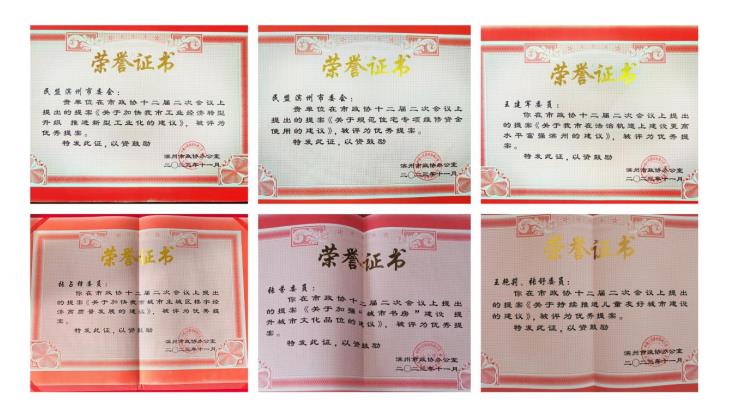 荣誉证书
民盟滨州市委会：
贵单位在市政协十二届二次会议上
提出的提案《关于加快我市工业经济转型
升级 推进新型工业化的建议》，被评为
优秀提案。
特发此证，以资鼓励
滨州市政协办公室
二〇二三年十一月
荣誉证书
民盟滨州市委会：
贵单位在市政协十二届二次会议上
提出的提案《关于规范住宅专项维修资金
使用的建议》，被评为优秀提案。
特发此证，以资鼓励
滨州市政协办公室
二〇二三年十一月
荣誉证书
王建军委员：
你在市政协十二届二次会议上提出
的提案《关于我市在法治轨道上建设更高
水平富强滨州的建议》，被评为优秀提
案。
特发此证，以资鼓励
滨州市政协办公室
二〇二三年十一月
荣誉证书
委员：
你在市政协十二届二次会议上提出
的提案《关于加快我市城市主城区楼宇经
济高质量发展的建议》，被评为优秀提案。
特发此证，以资鼓励
滨州市政协办公室
二〇二三年十一月
荣誉证书
张蕾委员：
你在市政协十二届二次会议上提出
的提案《关于加强“城市书房”建设 提
升城市文化品位的建议》，被评为优秀提
案。
特发此证，以资鼓励
滨州市政协办公室
二〇二三年十一月
荣誉证书
王艳莉、张舒委员：
你在市政协十二届二次会议上提出
的提案《关于持续推进儿童友好城市建设
的建议》，被评为优秀提案。
特发此证，以资鼓励
滨州市政协办公室
二〇二三年十一月